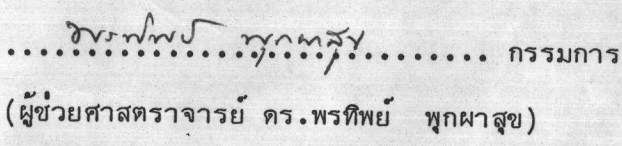 พรทิพย์ พุกผาสุข กรรมการ
(ผู้ช่วยศาสตราจารย์ ดร.พรทิพย์ พุกผาสุข)